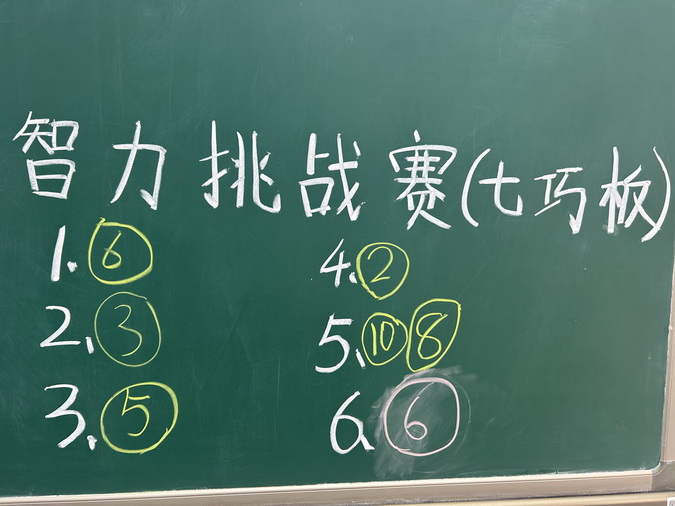 智力挑战赛(七巧板)
1. ⑥
2、③
3、⑤
4、②
5、⑩⑧
6、⑥